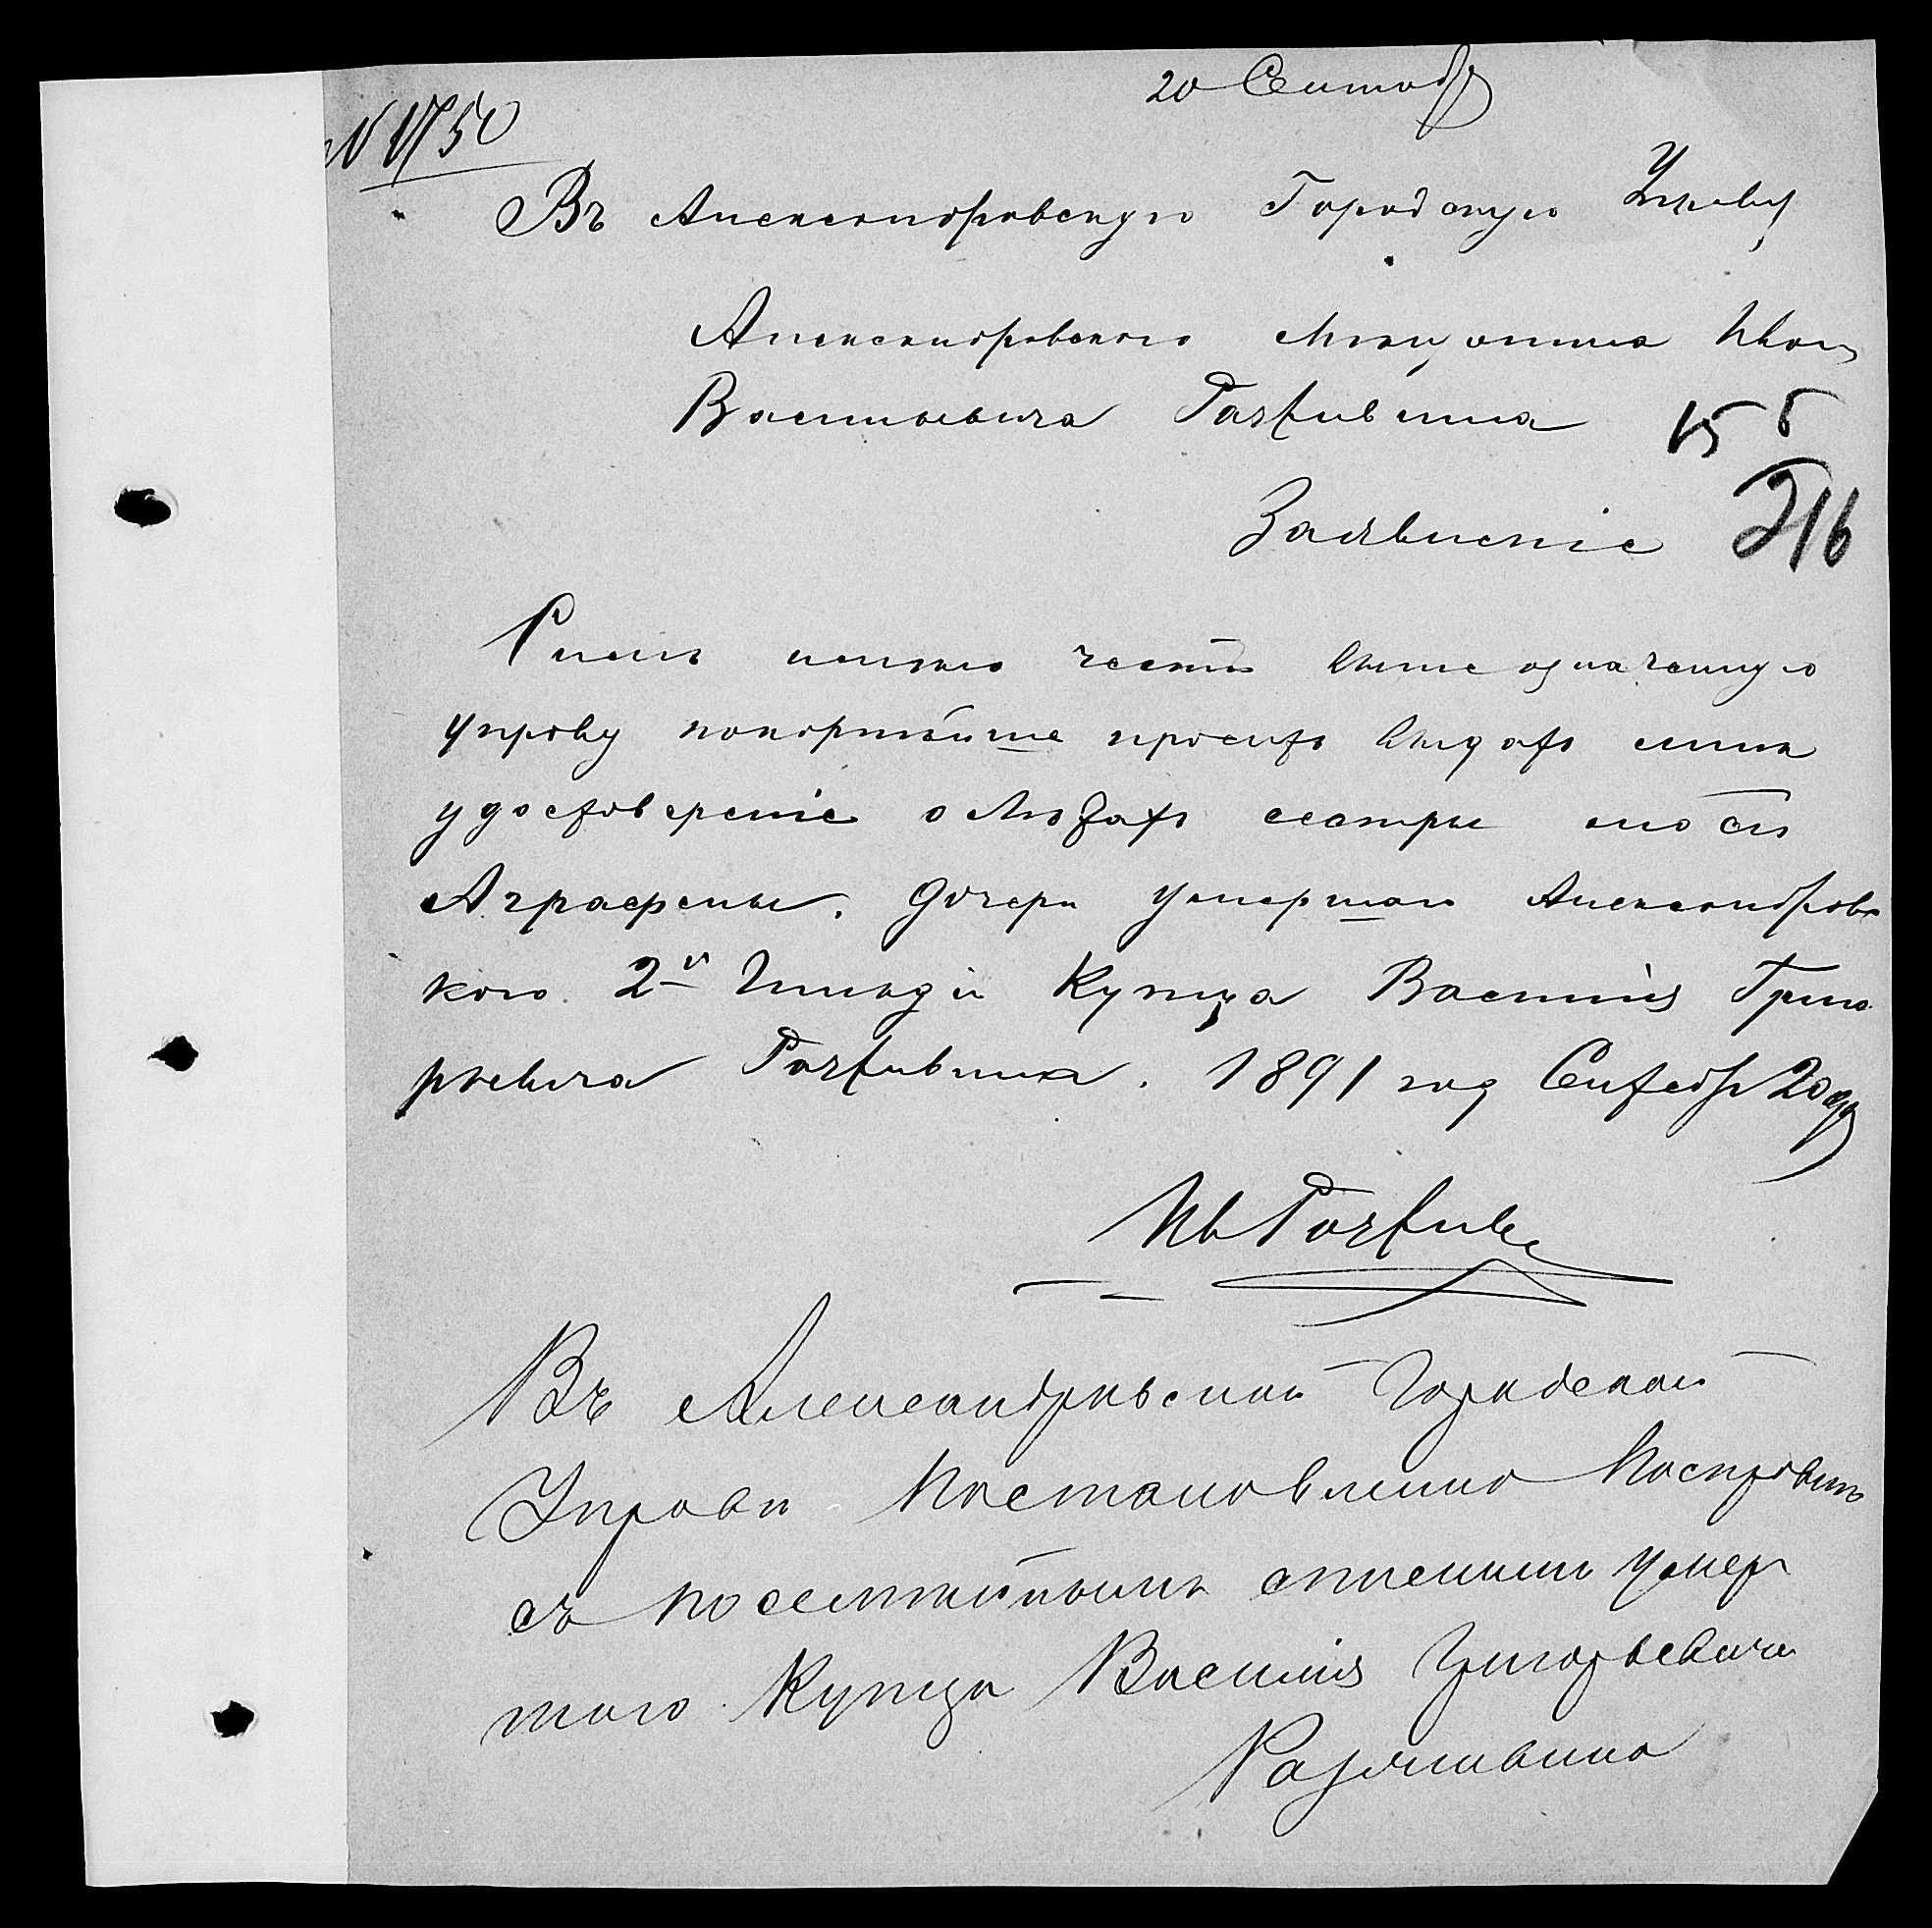 20 Сентяб
№ 1750
Въ Александровскую Городскую Управу
Александровского Мещанина Ивана
Васильевича Разживина
156
216
Заявленіе
Симъ имею честь выше означенную
управу покорнейше просить выдать мне
удостоверение о летахъ сестры моей
Аграфены. дочери умершаго Александровс
кого 2й Гильдіи Купца Василія Григо
рьевича Разживина. 1891 год Сентябр 20 дн
Ив Разживин
Въ Александровской Городской
Управе Постановлено
съ посемейнымъ спискомъ умер
шаго Купца Василія Григорьевича
Разживина